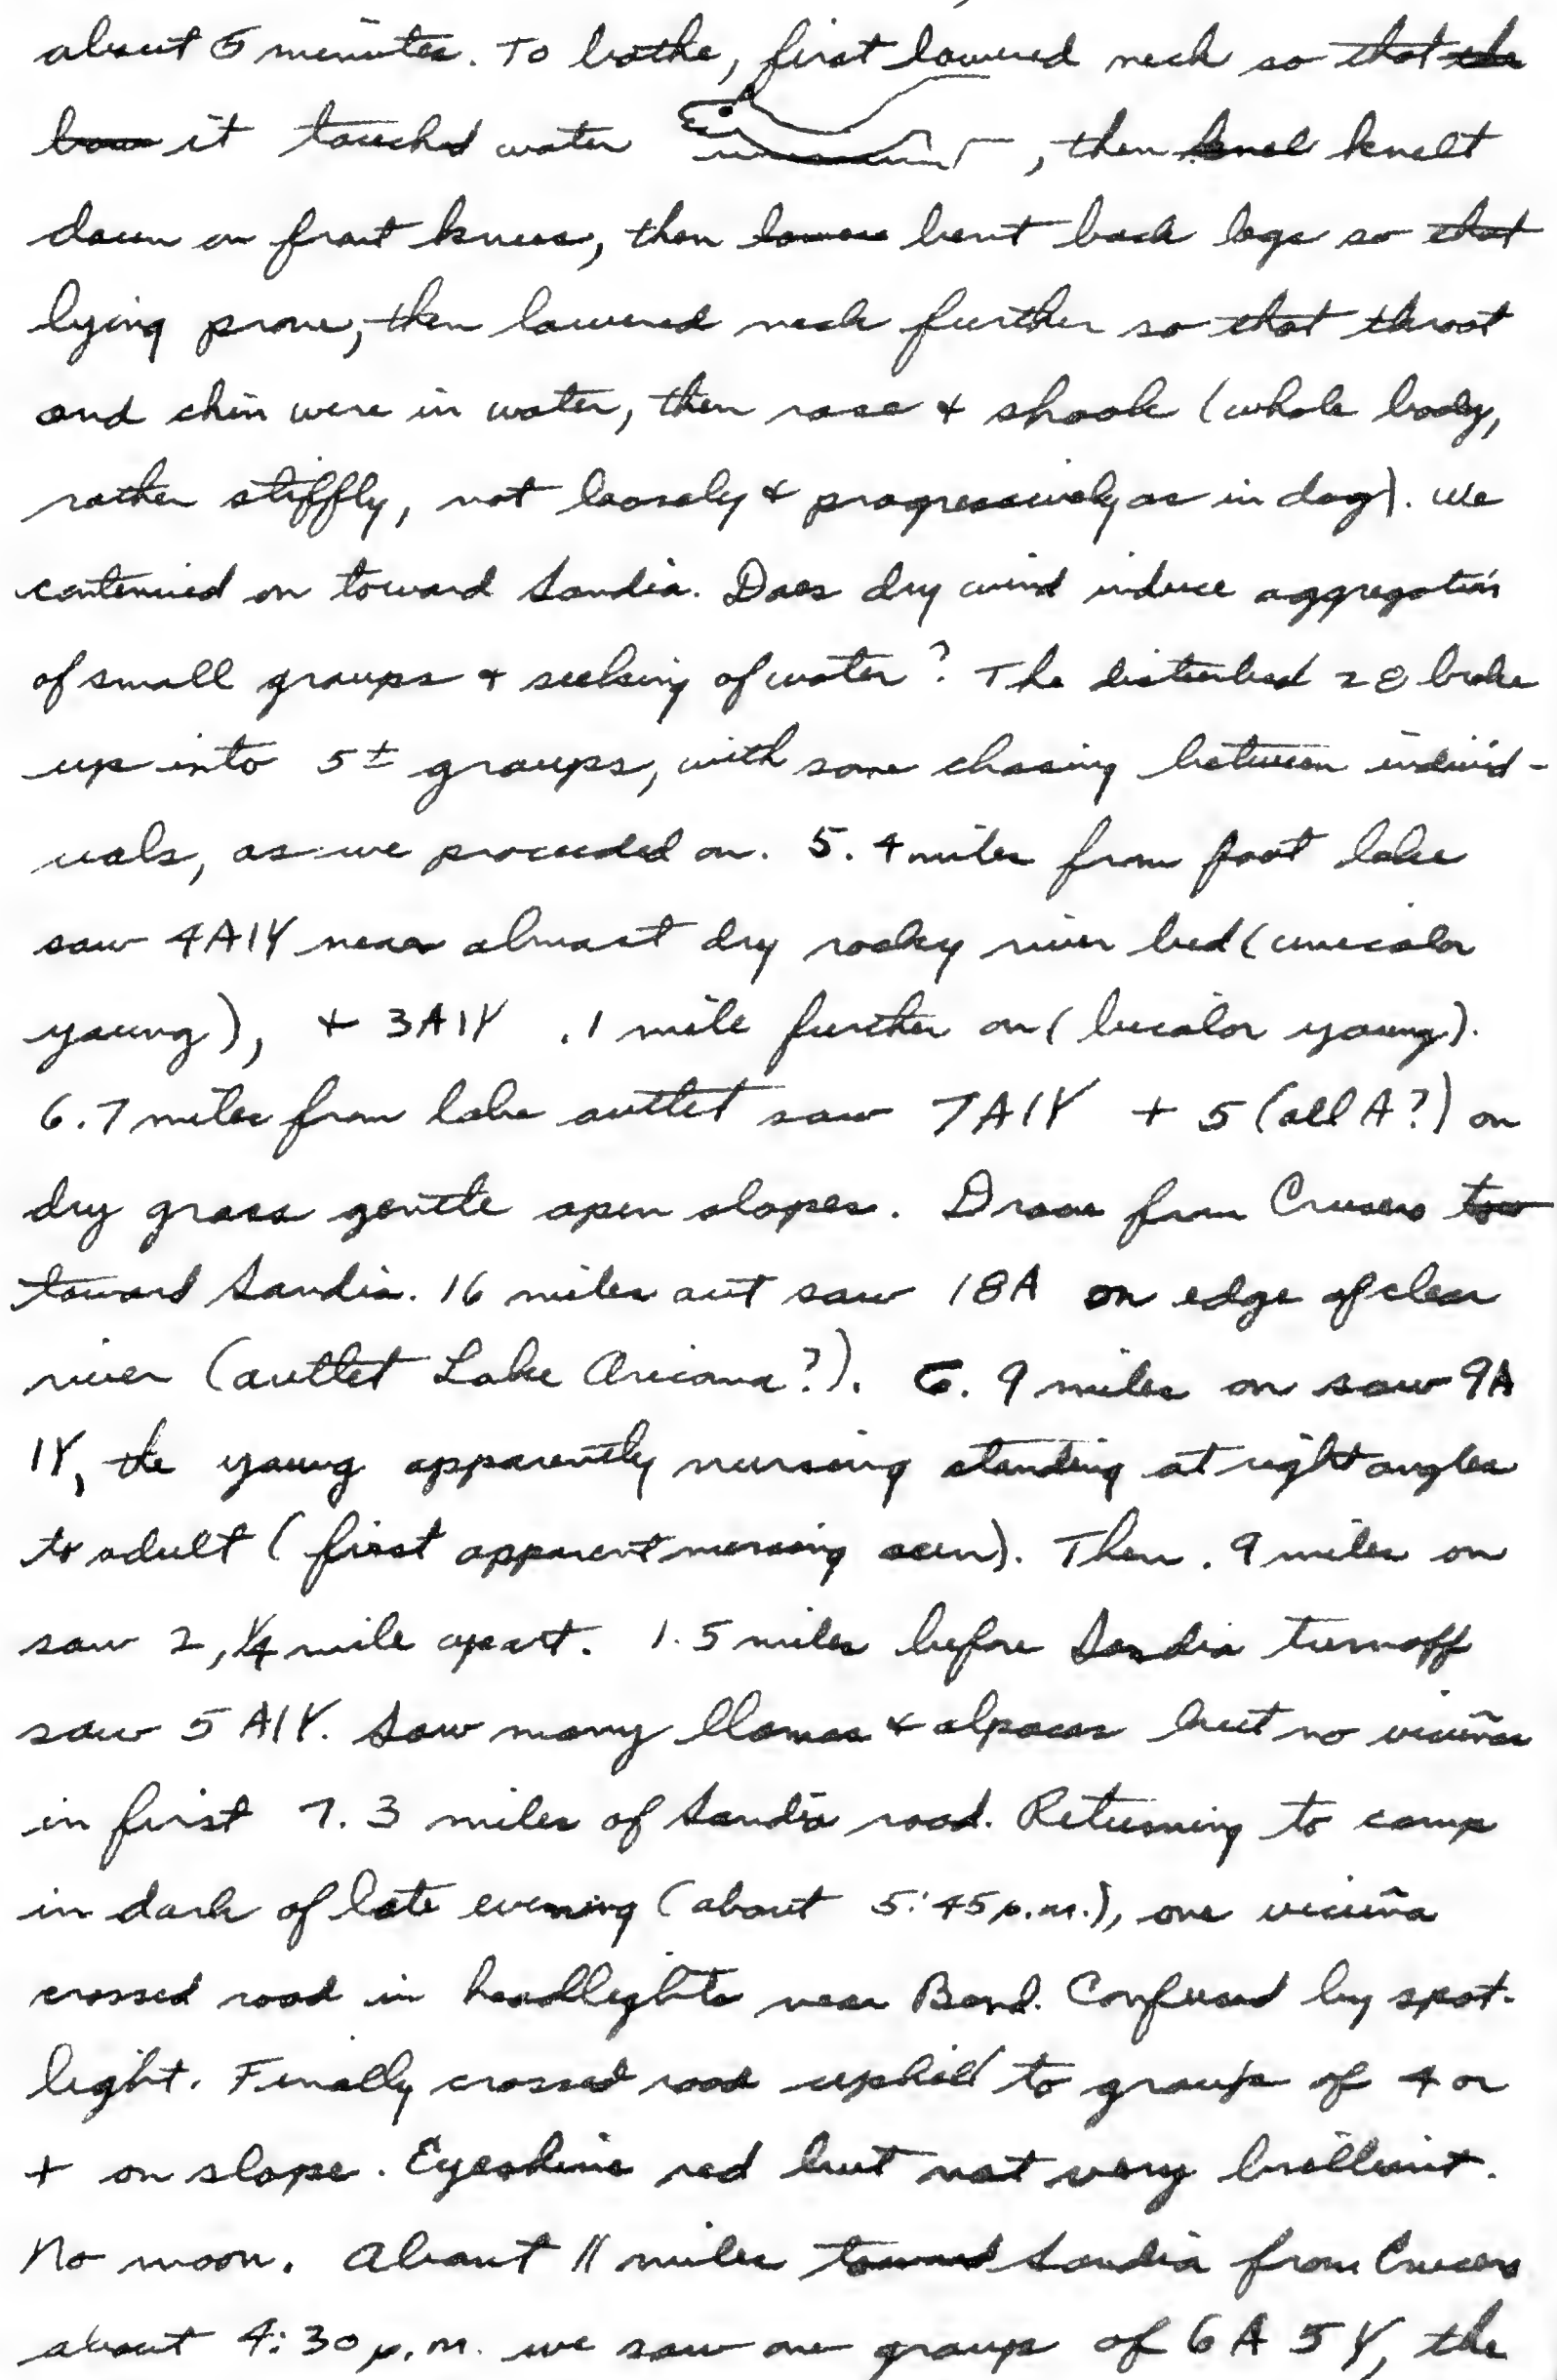 about 5 minutes. To bathe, first lowered neck so that the
it touched water , then knel knelt
down on front knees, then bent back legs so that
lying prone, then lowered neck further so that throat
and chin were in water, then rose + shook (whole body,
rather stiffly, not loosely + progressively as in dog). We
continued on toward Sandia. Does dry wind induce aggregation
of small groups + seeking of water? The disturbed 28 broke
up into 5± groups, with some chasing between individ-
uals, as we proceeded on. 5.4 miles from foot lake
saw 4A1Y near almost dry rocky river bed (unicolor
young), + 3A1Y .1 mile further on (bicolor young).
6.7 miles from lake outlet saw 7A1Y + 5 (all A?) on
dry grass gentle open slopes. Drove from Crucero to
toward Sandia. 16 miles out saw 18A on edge of clear
river (outlet Lake Aricoma?). .9 miles on saw 9A
1Y, the young apparently nursing standing at right angles
to adult (first apparent nursing seen). Then .9 miles on
saw 2, 1/4 mile apart. 1.5 miles before Sandia turnoff
saw 5 A1Y. Saw many llamas + alpacas but no vicuñas
in first 7.3 miles of Sandia road. Returning to camp
in dark of late evening (about 5:45 p.m.), one vicuña
crossed road in headlights near Bend. Confused by spot-
light. Finally crossed road uphill to group of 4 or
+ on slope. Eyeshine red but not very brilliant.
No moon. About 11 miles toward Sandia from Crucero
about 4:30 p.m. we saw one group of 6A 5Y, the